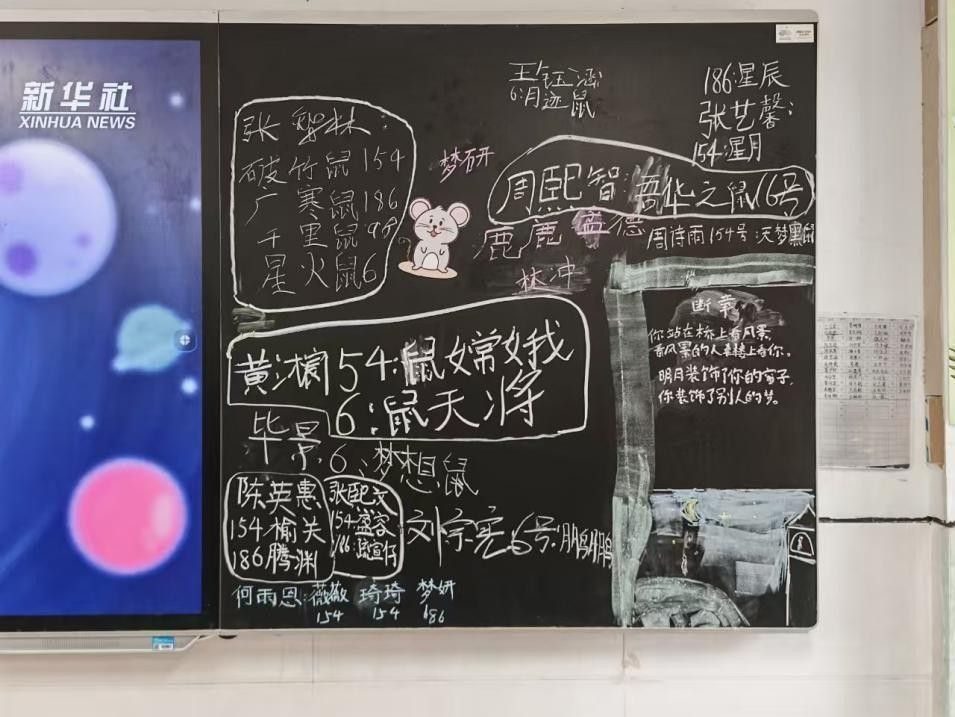 新华社
XINHUA NEWS
张 林:
破竹鼠154
广寒鼠186
千里鼠98
星火鼠6
梦研
王钰涵
6:月迹鼠
186:星辰
张艺馨:
154:星月
周熙智:吾华之鼠16号
鹿鹿 孟德
周诗雨154号:天梦黑鼠
林冲
断章:
你站在桥上看风景,
看风景的人在楼上看你。
明月装饰了你的窗子,
你装饰了别人的梦。
黄 54:鼠嫦娥
6:鼠天将
毕景
6:梦想鼠
陈英惠
154榆关
186腾渊
张熙文
154:盛客
186:宣仔
刘宗宪:6号:鹏鹏
何雨恩:薇薇 琦琦 梦妍
154 154 686